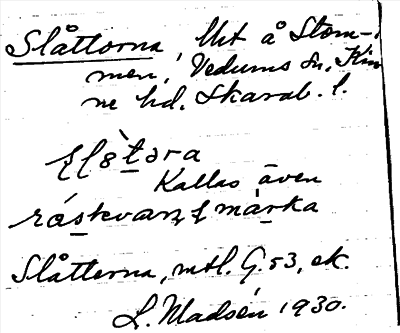 Slåttorna, Urt å Stom-
men, Vedums sn, Kin
ne hd. Skarab. l.
slòtəra
Kallas även
ráskvarnsmarka
Slåtterna, mtl. G. 53, ek.
L. Madsén 1930.